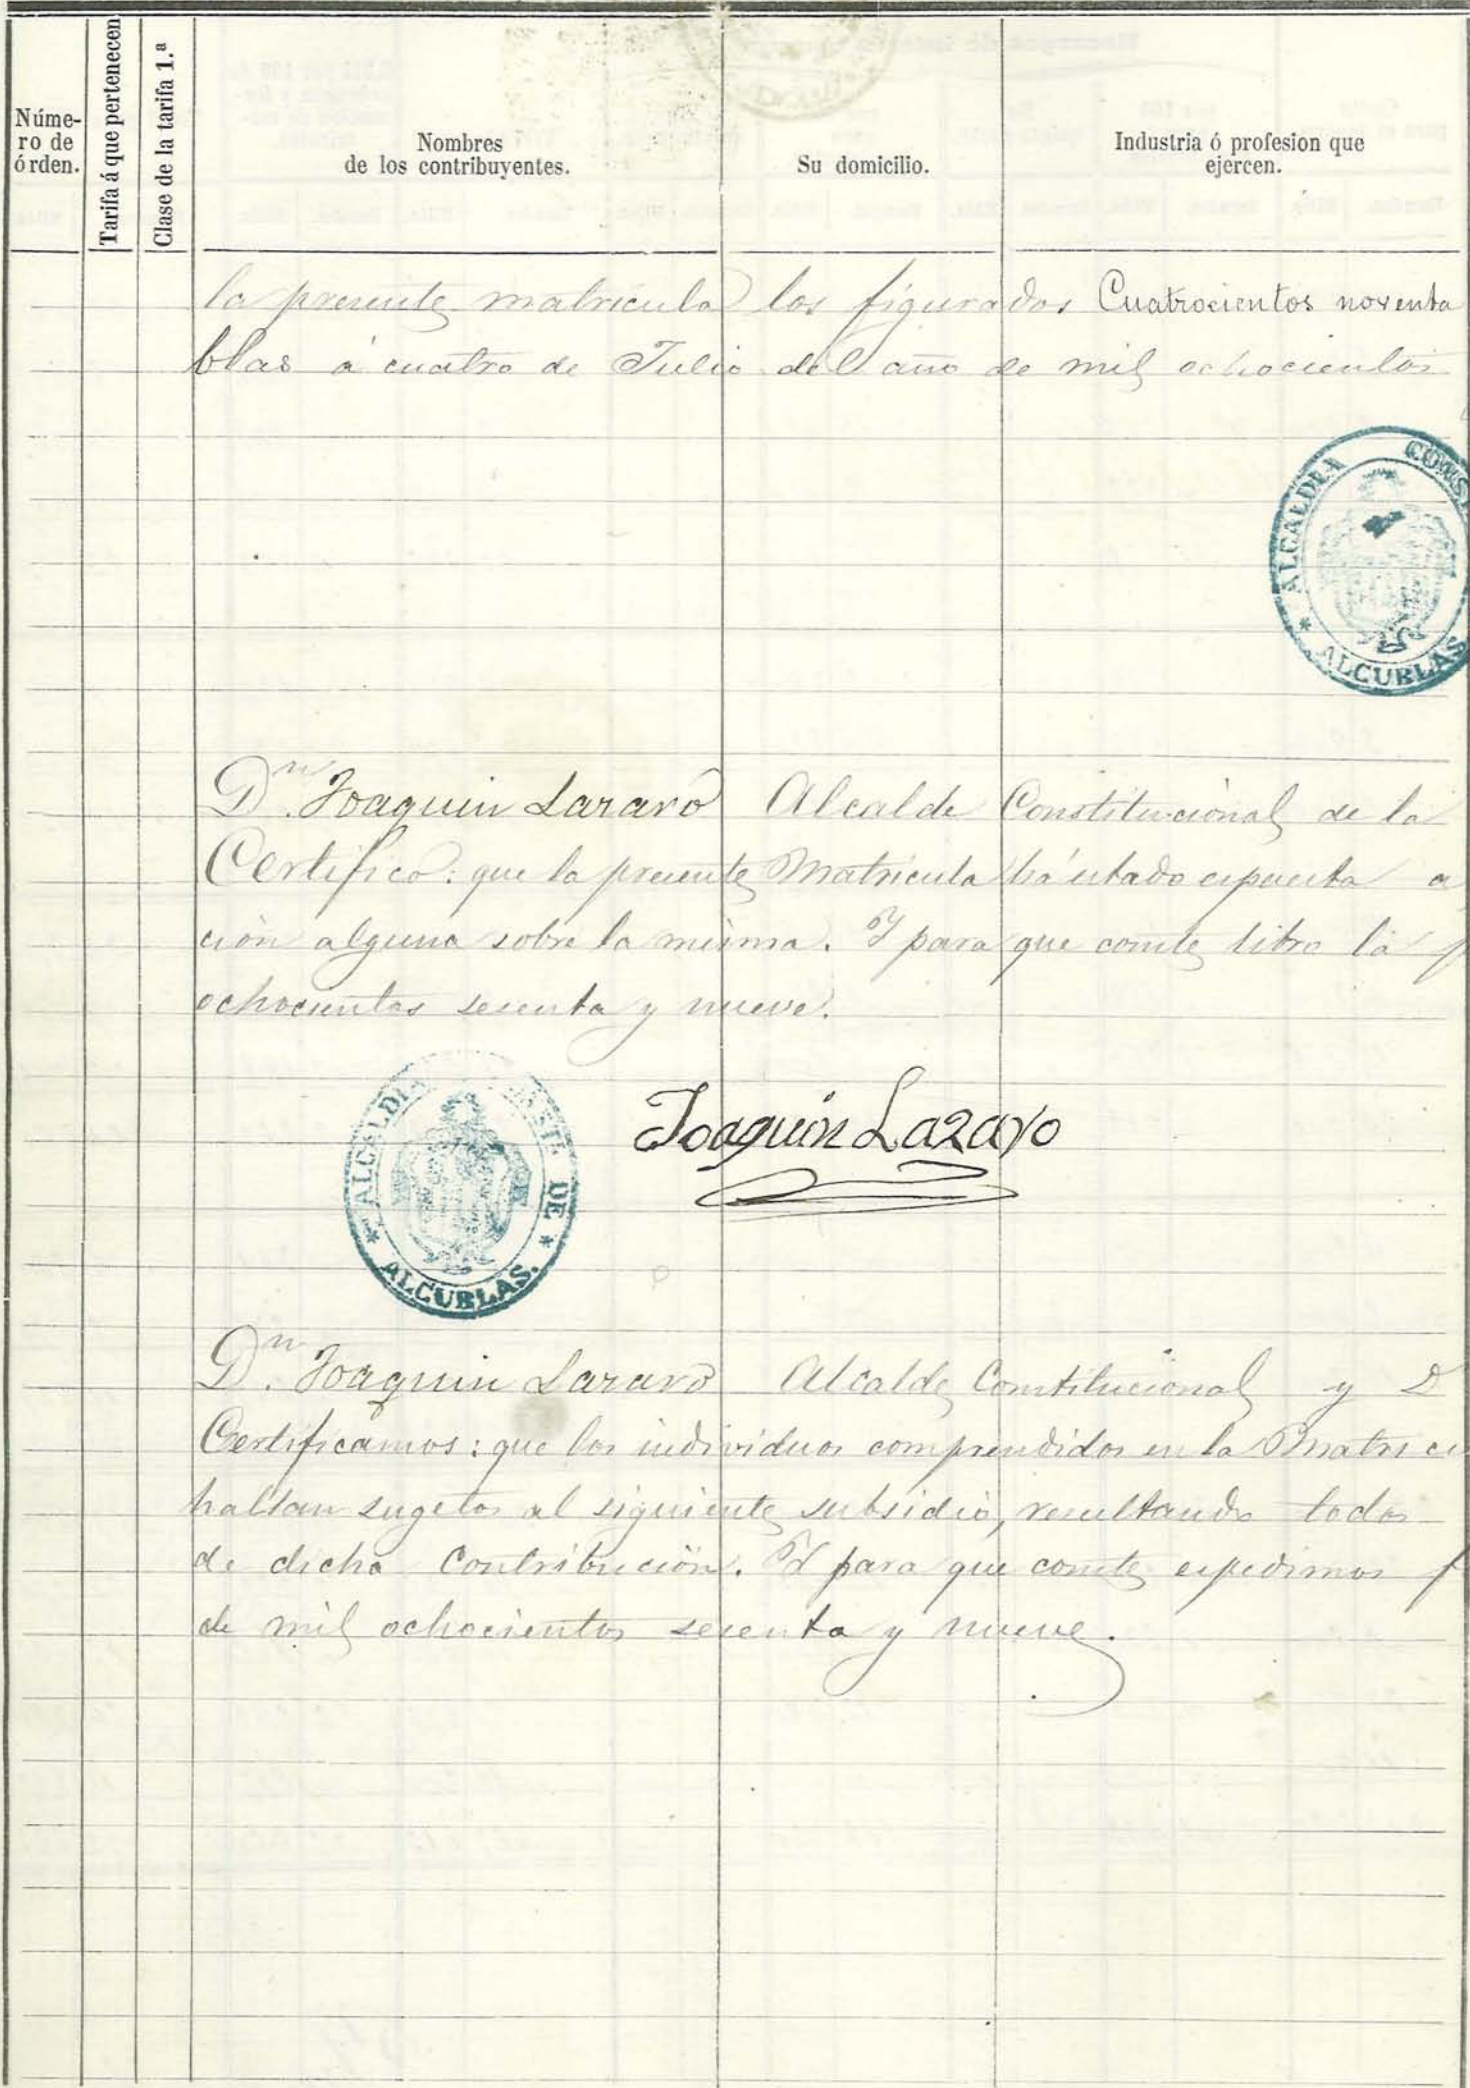 Núme-
ro de
órden.
Tarifa á que pertenecen
Clase de la tarifa 1.ª
Nombres
de los contribuyentes.
Su domicilio.
Industria ó profesion que
ejercen.
la presente matricula los figurados Cuatrocientos noventa
blas á cuatro de Julio del año de mil ochocientos
* ALCALDIA CONS
ALCUBLAS
Dn. Joaquin Lazaro Alcalde Constitucional de la
Certifico: que la presente Matricula há estado espuesta a
ción alguna sobre la misma. Y para que conste libro la p
ochocientos sesenta y nueve.
* ALCALDIA DE *
ALCUBLAS.
Joaquin Lazaro
Dn. Joaquin Lazaro Alcalde Constitucional y D
Certificamos: que los individuos comprendidos en la Matricu
hallan sugetos al siguiente subsidio, resultando todos
de dicha Contribución. Y para que conste espedimos p
de mil ochocientos sesenta y nueve.